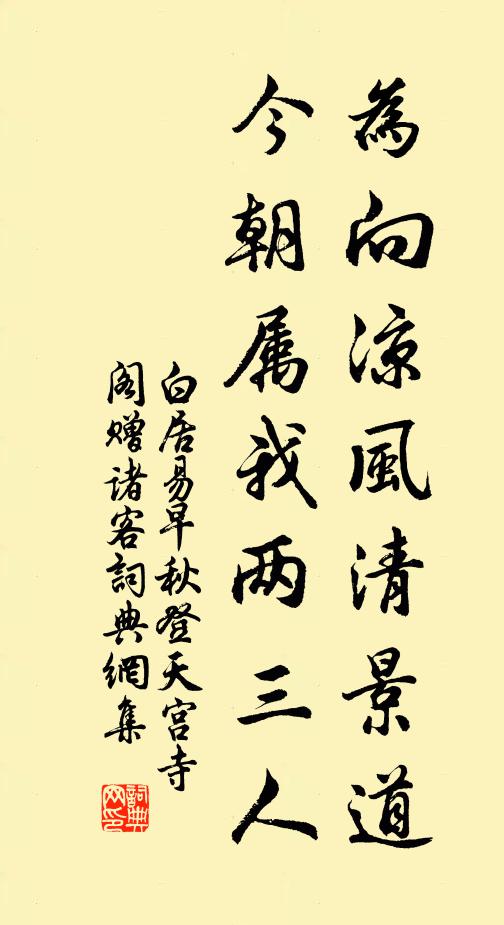 為向涼風清景道
今朝属我两三人
白居易早秋登天宫寺
阁赠诸客詞典網集
詞典
网印